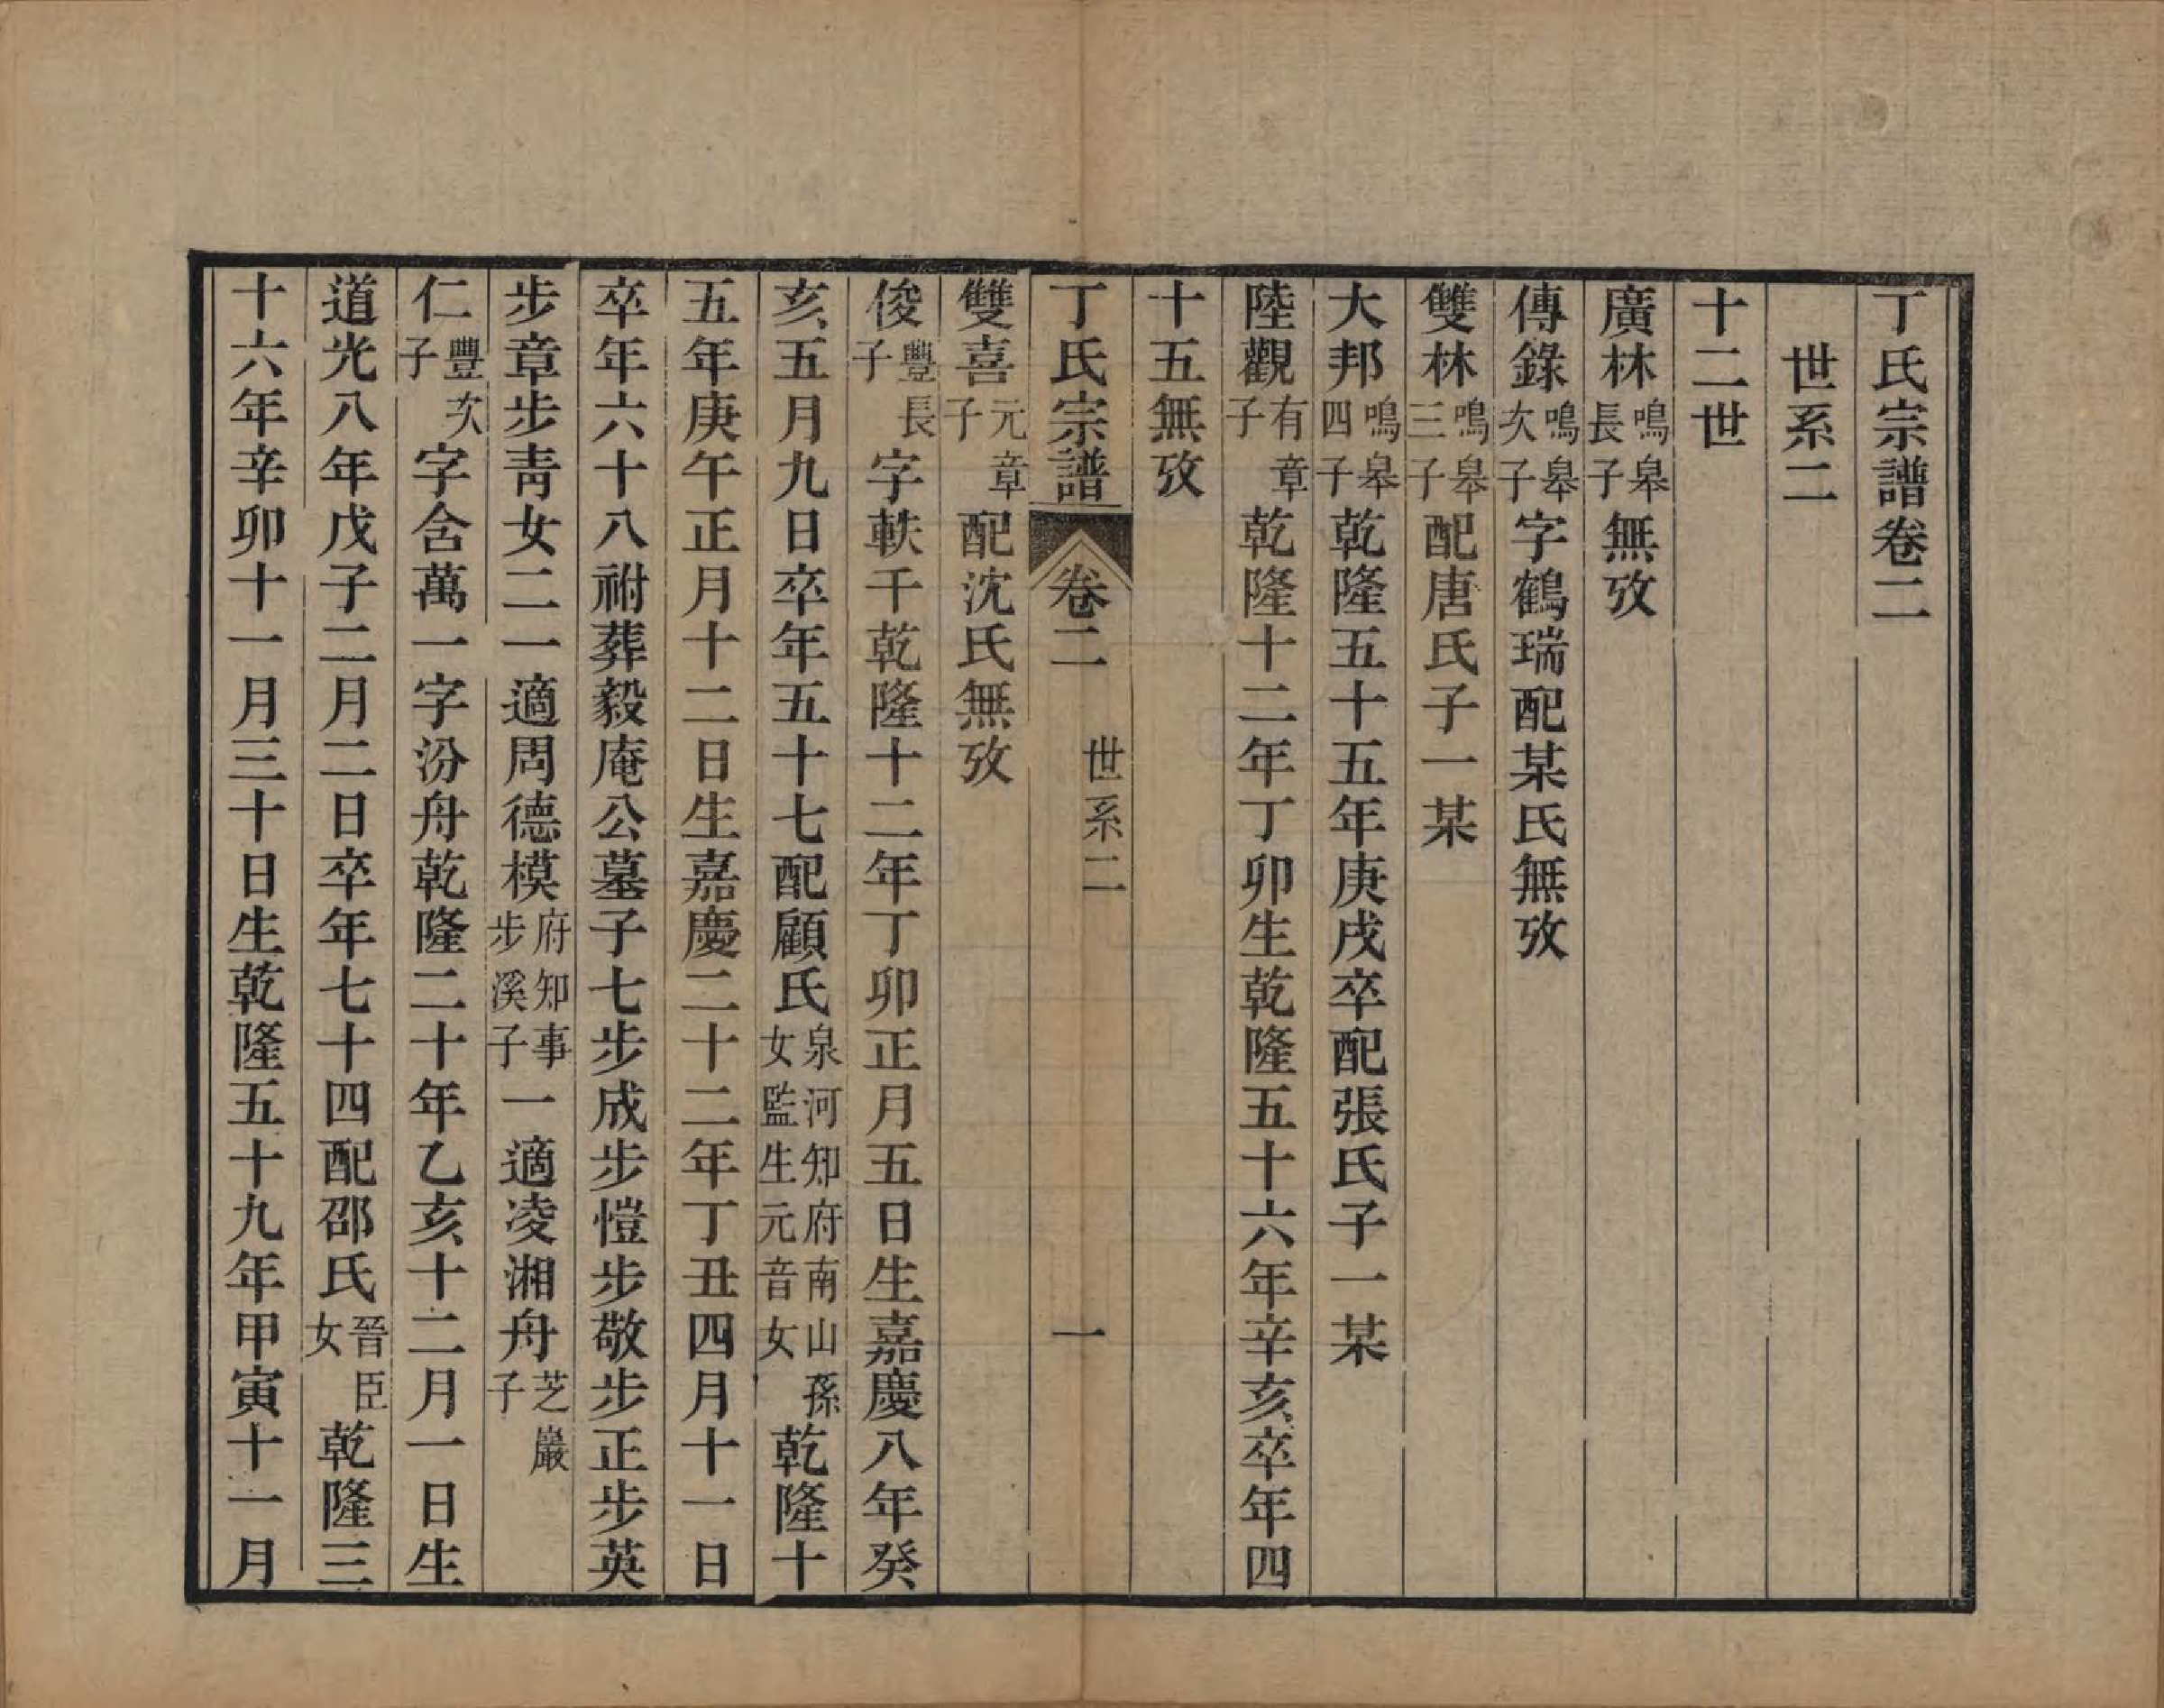 丁氏宗譜卷二
世系二
十二世
廣林鳴皋長子無攷
傳錄鳴皋次子字鶴瑞配某氏無攷
雙林鳴皋三子配唐氏子一某
大邦鳴皋四子乾隆五十五年庚戌卒配張氏子一某
陸觀有章子乾隆十二年丁卯生乾隆五十六年辛亥卒年四
十五無攷
丁氏宗譜 卷二 世系二 一
雙喜元章子配沈氏無攷
俊豐長子字軼千乾隆十二年丁卯正月五日生嘉慶八年癸
亥五月九日卒年五十七配顧氏泉河知府南山孫女監生元音女乾隆十
五年庚午正月十二日生嘉慶二十二年丁丑四月十一日
卒年六十八祔葬毅庵公墓子七步成步愷步敬步正步英
步章步靑女二一適周德模府知事步溪子一適凌湘舟芝巖子
仁豐次子字含萬一字汾舟乾隆二十年乙亥十二月一日生
道光八年戊子二月二日卒年七十四配邵氏晉臣女乾隆三
十六年辛卯十一月三十日生乾隆五十九年甲寅十一月